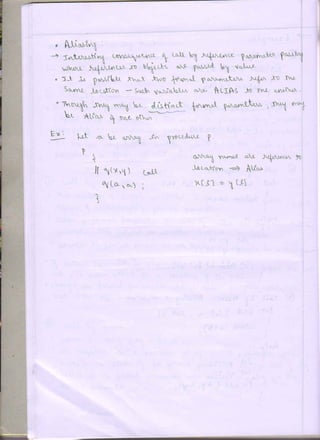 • Aliasing :
→ Interesting consequence of call by reference parameter passing
where references to objects are passed by value.
• It is possible that two formal parameters refer to the
same location – such variables are ALIAS to one another.
• Though they may be distinct formal parameters, they may
be Alias of one other
Ex: Let a be array in procedure P
P
{ array names are references to
// q(x,y) call location → Alias
q(a,a) ; x[5] = y[5].
}